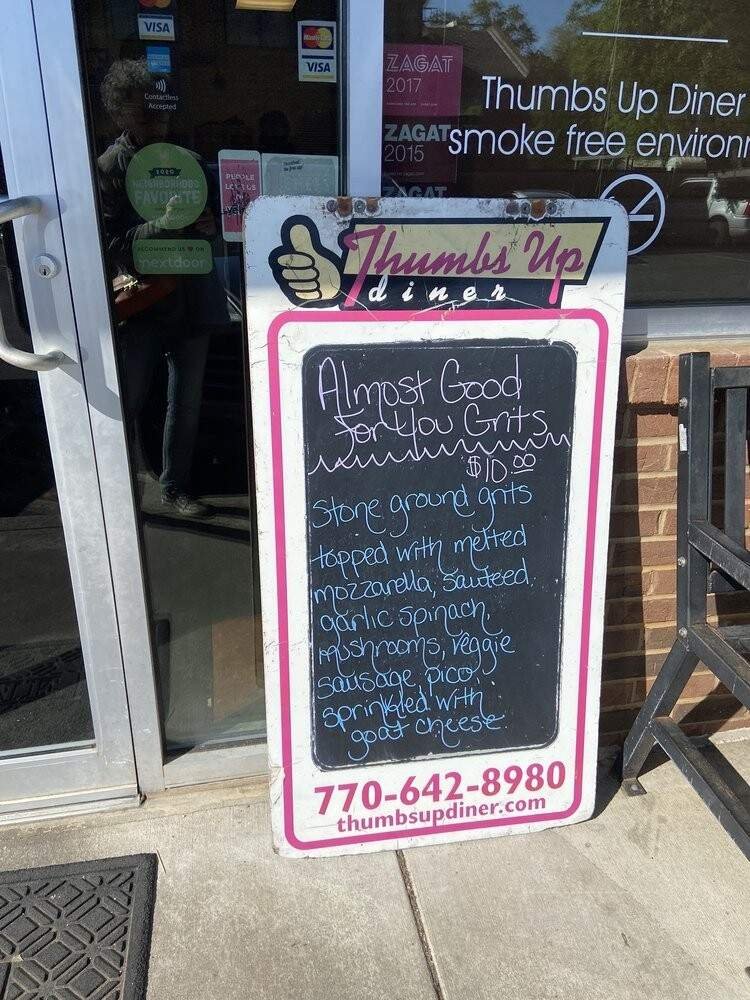 VISA
MasterCard
VISA
Contactless
Accepted
ZAGAT
2017
ZAGAT
2015
ZAGAT
Thumbs Up Diner
smoke free environ
2020
NEIGHBORHOOD
FAVORITE
RECOMMEND US ♥ ON
nextdoor
PEOPLE
LOVE US
Thumbs Up
diner
Almost Good
For You Grits
$10.00
Stone ground grits
topped with melted
mozzarella, sauteed
garlic spinach,
mushrooms, veggie
sausage, pico,
sprinkled with
goat cheese
770-642-8980
thumbsupdiner.com